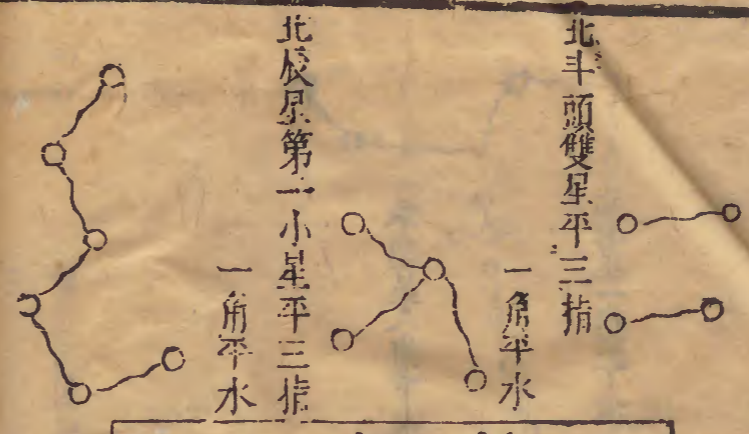 北斗頭雙星平三指
一角平水
北辰星第一小星平三指
一角平水